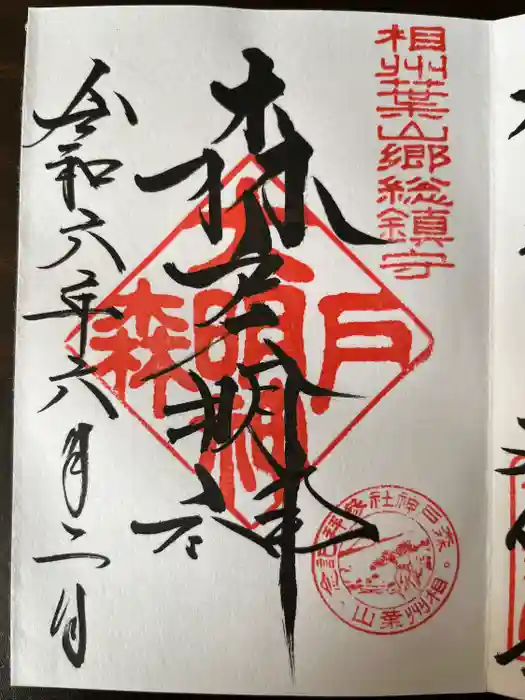 相州葉山郷総鎮守
森戸明神
森戸大明神
森戸神社参拝記念
相州葉山
令和六年六月二日